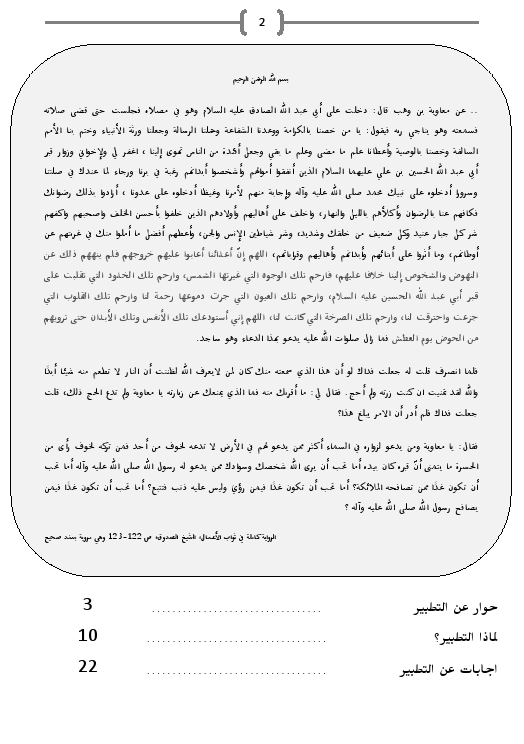 2
بسم الله الرحمن الرحيم
.. عن معاوية بن وهب قال: دخلت على أبي عبد الله الصادق عليه السلام وهو في مصلاه فجلست حتى قضى صلاته
فسمعته وهو يناجي ربه فيقول: يا من خصنا بالكرامة ووعدنا الشفاعة وحملنا الرسالة وجعلنا ورثة الأنبياء وختم بنا الأمم
السالفة وخصنا بالوصية وأعطانا علم ما مضى وعلم ما بقي وجعل أفئدة من الناس تهوى إلينا ، اغفر لي ولإخواني وزوار قبر
أبي عبد الله الحسين بن علي عليهما السلام الذين أنفقوا أموالهم وأشخصوا أبدانهم رغبة في برنا ورجاء لما عندك في صلتنا
وسرورا أدخلوه على نبيك محمد صلى الله عليه وآله وإجابة منهم لأمرنا وغيظا أدخلوه على عدونا ، أرادوا بذلك رضوانك
فكافهم عنا بالرضوان وأكلأهم بالليل والنهار، واخلف على أهاليهم وأولادهم الذين خلفوا بأحسن الخلف واصحبهم واكفهم
شر كل جبار عنيد وكل ضعيف من خلقك وشديد، وشر شياطين الإنس والجن، وأعطهم أفضل ما أملوا منك في غربتهم عن
أوطانهم، وما آثروا على أبنائهم وأبدانهم وأهاليهم وقراباتهم، اللهم إنّ أعداءنا أعابوا عليهم خروجهم فلم ينههم ذلك عن
النهوض والشخوص إلينا خلافا عليهم، فارحم تلك الوجوه التي غيرتها الشمس، وارحم تلك الخدود التي تقلبت على
قبر أبي عبد الله الحسين عليه السلام، وارحم تلك العيون التي جرت دموعها رحمة لنا وارحم تلك القلوب التي
جزعت واحترقت لنا، وارحم تلك الصرخة التي كانت لنا، اللهم إني أستودعك تلك الأنفس وتلك الأبدان حتى ترويهم
من الحوض يوم العطش فما زال صلوات الله عليه يدعو بهذا الدعاء وهو ساجد.
فلما انصرف قلت له جعلت فداك لو أن هذا الذي سمعته منك كان لمن لايعرف الله لظننت أن النار لا تطعم منه شيئا أبدًا
والله لقد تمنيت ان كنت زرته ولم أحج. فقال لي: ما أقربك منه فما الذي يمنعك عن زيارته يا معاوية ولم تدع الحج ذلك، قلت
جعلت فداك فلم أدر أن الامر يبلغ هذا؟
فقال: يا معاوية ومن يدعو لزواره في السماء أكثر ممن يدعو لهم في الأرض لا تدعه لخوف من أحد فمن تركه لخوف رأى من
الحسرة ما يتمنى أنّ قبره كان بيده أما تحب أن يرى الله شخصك وسوادك ممن يدعو له رسول الله صلى الله عليه وآله أما تحب
أن تكون غدًا ممن تصافحه الملائكة؟ أما تحب أن تكون غدًا فيمن رؤي وليس عليه ذنب فتتبع؟ أما تحب أن تكون غدًا فيمن
يصافح رسول الله صلى الله عليه وآله ؟
الرواية كاملة في ثواب الأعمال، الشيخ الصدوق، ص 122-123 وهي مروية بسند صحيح
حوار عن التطبير ................................ 3
لماذا التطبير؟ .................................. 10
اجابات عن التطبير .................................. 22